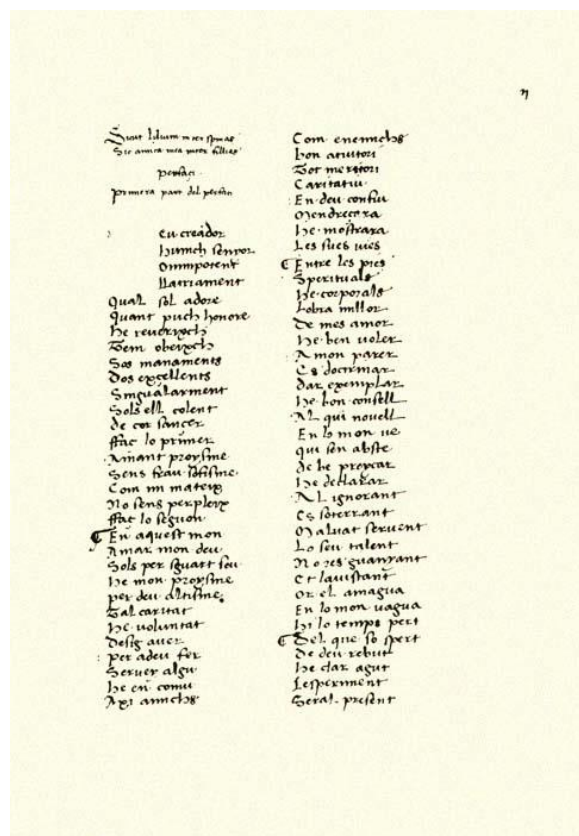 Sicut lilium inter spinas
Sic amica mea inter fillies
perfaçi
Primera part del perfaci
Eu creador
hunich senyor
Omnipotent
llatriament
Qual sol adore
Quant puch honore
he reverexch
Tem obeexch
Sos manaments
Dos excellents
Singualarment
Sols ell colent
de cor sancer
ffaç lo primer
Amant proysme
Sens frau sofisme
Com mi mateix
No sens perpleix
ffaç lo segon
En aquest mon
Amar mon deu
Sols per sguart seu
he mon proysme
per deu altisme
Tal caritat
he voluntat
desig aver
per adeu fer
Server algu
he en comu
Axi amichs
Com enemichs
bon atuitori
Tot meritori
Caritatiu
En deu confiu
Mendreçara
he mostrara
Les sues vies
Entre les pies
Sperituals
he corporals
Lobra millor
de mes amor
he ben voler
A mon parer
Es doctrinar
dar exemplar
he bon consell
AL qui novell
En lo mon ve
qui sen abste
de be preycar
he declarar
AL ignorant
Es soterrant
Malvat servent
Lo seu talent
No res guanyant
Et lavistant
Or el amagua
En lo mon vagua
hi lo temps pert
del que so spert
de deu rebut
he clar agut
Lesperiment
Seral present